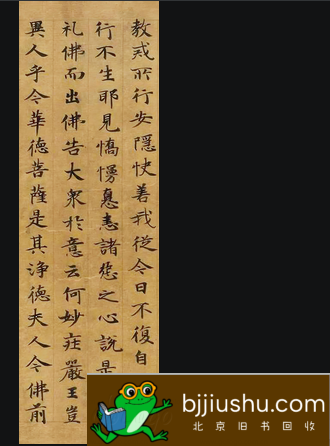 教戒所行安隱快善我從今日不復自
行不生耶見憍慢恚諸惡之心說是
礼佛而出佛告大衆於意云何妙莊嚴王豈
異人乎今華德菩薩是其淨德夫人今佛前
bjjiushu.com
北京旧书回收